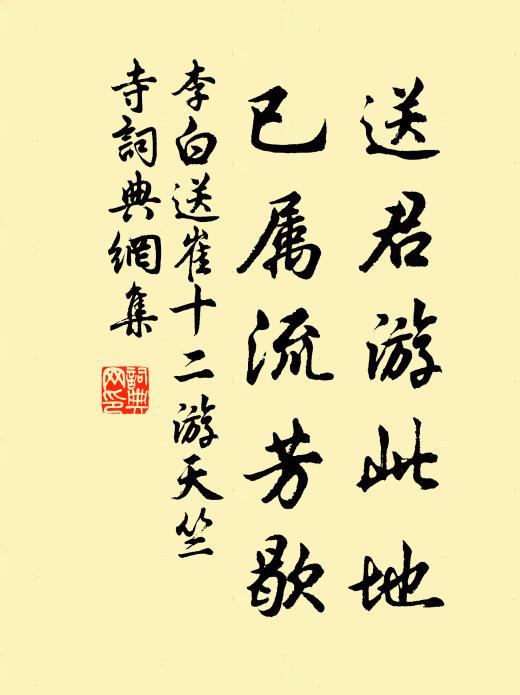 送君游此地
已属流芳歇
李白送崔十二游天竺
寺詞典網集
詞典
网印